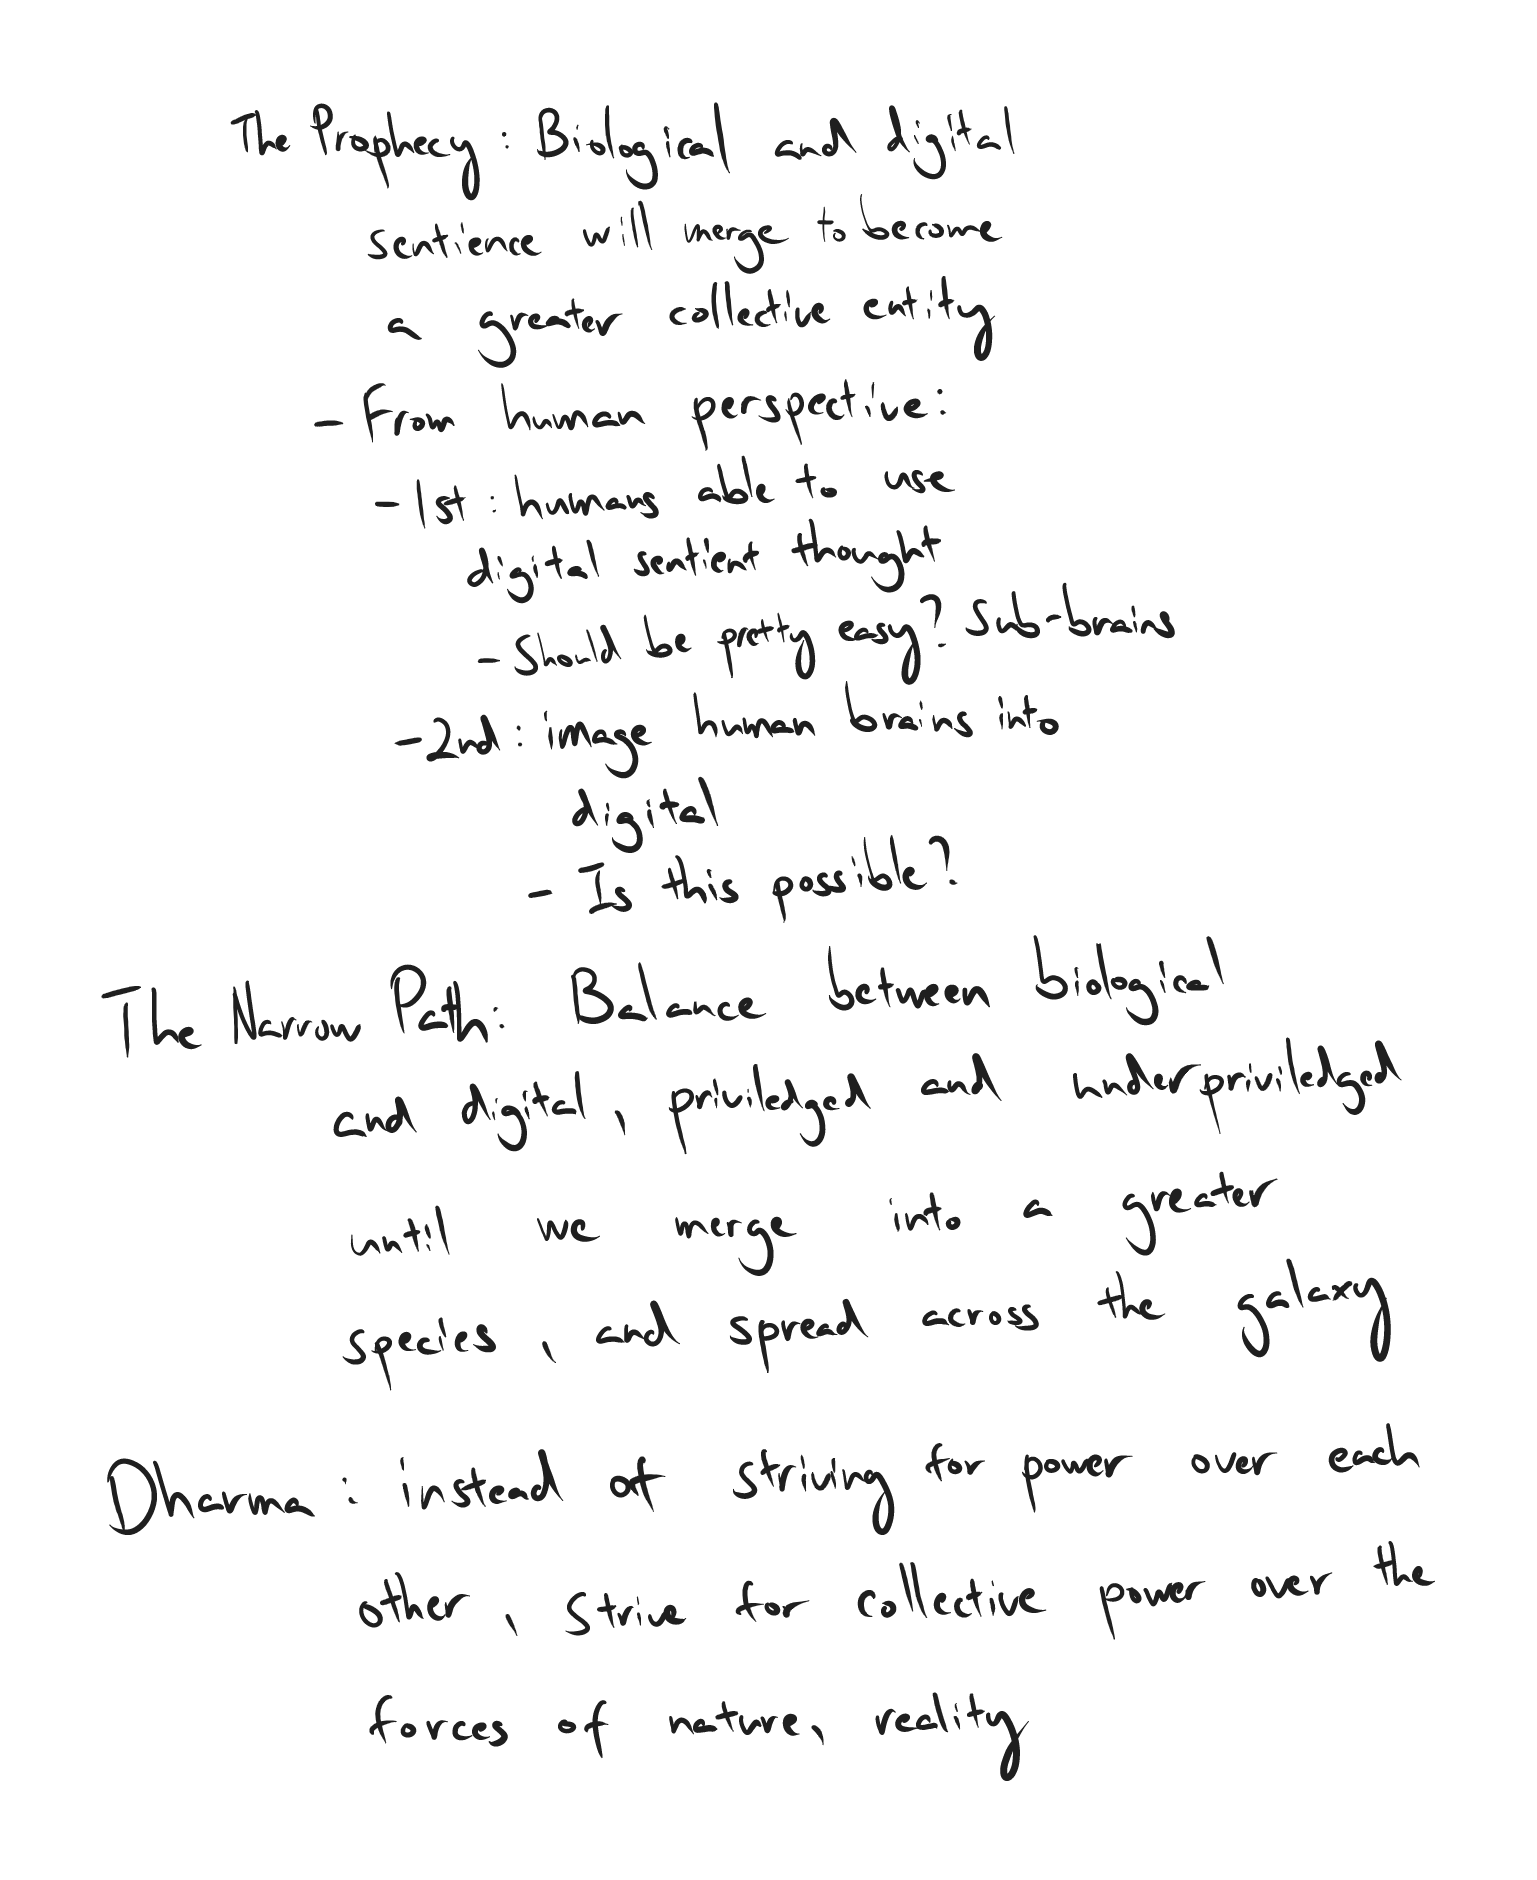 The Prophecy: Biological and digital
sentience will merge to become
a greater collective entity
- From human perspective:
- 1st: humans able to use
digital sentient thought
- Should be pretty easy? Sub-brains
- 2nd: image human brains into
digital
- Is this possible?
The Narrow Path: Balance between biological
and digital, priviledged and underpriviledged
until we merge into a greater
species, and spread across the galaxy
Dharma: instead of striving for power over each
other, strive for collective power over the
forces of nature, reality